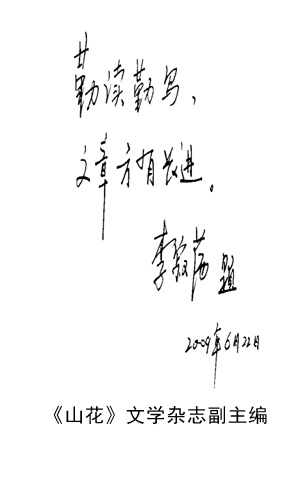 勤读勤写，
文章方有长进。
李寂荡 题
2009年6月22日
《山花》文学杂志副主编